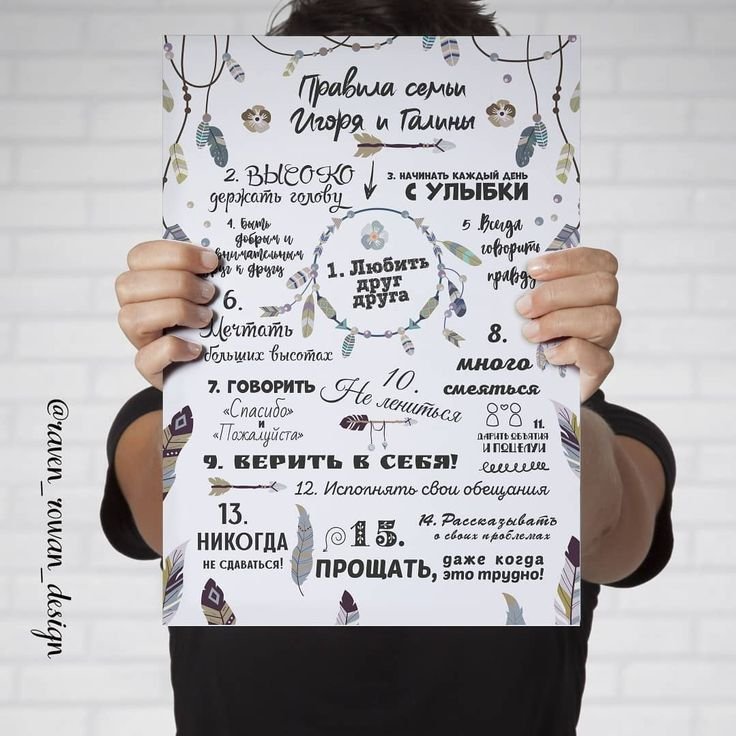 Правила семьи
Игоря и Галины
2. ВЫСОКО
держать голову
3. НАЧИНАТЬ КАЖДЫЙ ДЕНЬ
С УЛЫБКИ
4. Быть
добрым и
внимательным
друг к другу
1. Любить
друг
друга
5. Всегда
говорить
правду
6.
Мечтать
больших высотах
7. ГОВОРИТЬ
«Спасибо»
и
«Пожалуйста»
10.
Не лениться
8.
много
смеяться
11.
ДАРИТЬ ОБЪЯТИЯ
И ПОЦЕЛУИ
9. ВЕРИТЬ В СЕБЯ!
12. Исполнять свои обещания
13.
НИКОГДА
НЕ СДАВАТЬСЯ!
14. Рассказывать
о своих проблемах
15.
ПРОЩАТЬ,
даже когда
это трудно!
@raven_rowan_design